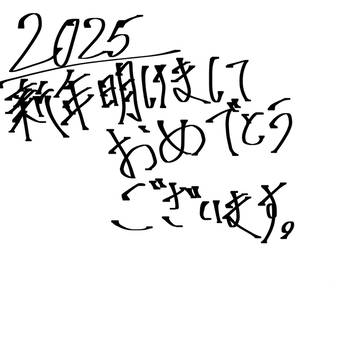 2025
新年明けまして
おめでとう
ございます。